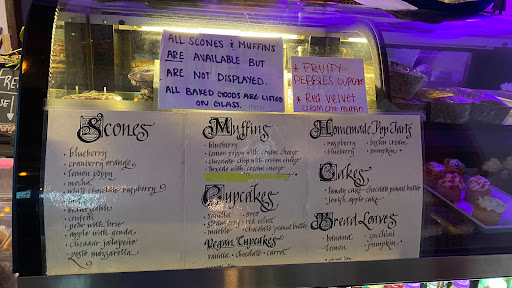 ALL SCONES & MUFFINS
ARE AVAILABLE BUT
ARE NOT DISPLAYED.
ALL BAKED GOODS ARE LISTED
ON GLASS.
* FRUITY
PEBBLES CUPCAKE
* Red Velvet
cream chz muffin
Scones
• blueberry
• cranberry orange
• lemon poppy
• mocha
• white chocolate raspberry
• confetti
• pear with brie
• apple with gouda
• cheddar jalapeño
• pesto mozzarella
Muffins
• blueberry
• lemon poppy with cream cheese
• chocolate chip with cream cheese
• tuxedo with cream cheese
Cupcakes
• vanilla • oreo
• strawberry • red velvet
• marble • chocolate peanut butter
Vegan Cupcakes
vanilla • chocolate • carrot
Homemade Pop Tarts
• raspberry • boston cream
• blueberry • pumpkin
Cakes
• tandy cake • chocolate peanut butter
• Jewish apple cake
Bread Loaves
• banana • zucchini
• lemon • pumpkin